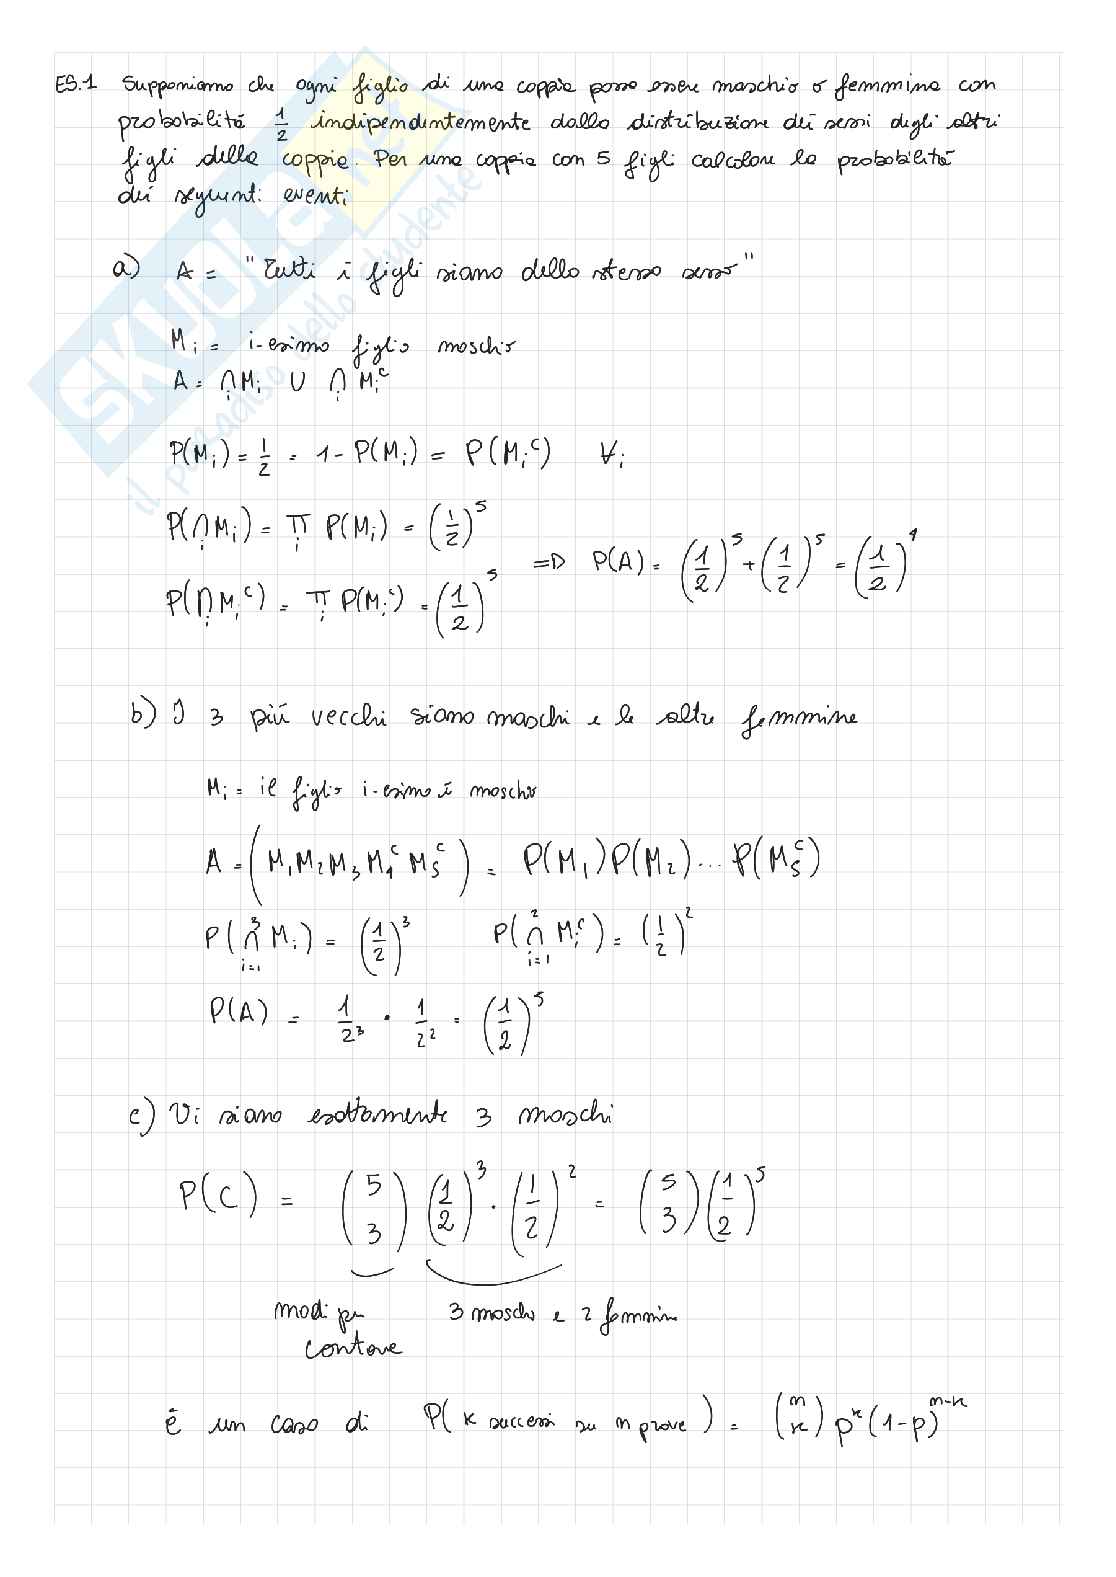 ES.1 Supponiamo che ogni figlio di una coppia possa essere maschio o femmina con
probabilità 1/2 indipendentemente dalla distribuzione dei sessi degli altri
figli della coppia. Per una coppia con 5 figli calcolare la probabilità
dei seguenti eventi
a) A = "Tutti i figli siano dello stesso sesso"
M_i = i-esimo figlio maschio
A = ∩_i M_i ∪ ∩_i M_i^c
P(M_i) = 1/2 = 1 - P(M_i) = P(M_i^c) ∀_i
P(∩_i M_i) = π_i P(M_i) = (1/2)^5
P(∩_i M_i^c) = π_i P(M_i^c) = (1/2)^5 => P(A) = (1/2)^5 + (1/2)^5 = (1/2)^4
b) I 3 più vecchi siano maschi e le altre femmine
M_i = il figlio i-esimo è maschio
A = (M_1 M_2 M_3 M_4^c M_5^c) = P(M_1) P(M_2) ... P(M_5^c)
P(∩_{i=1}^3 M_i) = (1/2)^3 P(∩_{i=1}^2 M_i^c) = (1/2)^2
P(A) = 1/2^3 · 1/2^2 = (1/2)^5
c) Vi siano esattamente 3 maschi
P(C) = (5 3) (1/2)^3 · (1/2)^2 = (5 3) (1/2)^5
modi per 3 maschi e 2 femmin
contare
è un caso di P( k successi su n prove ) = (n k) p^k (1-p)^{n-k}
SKUOLA.net
il paradiso dello studente